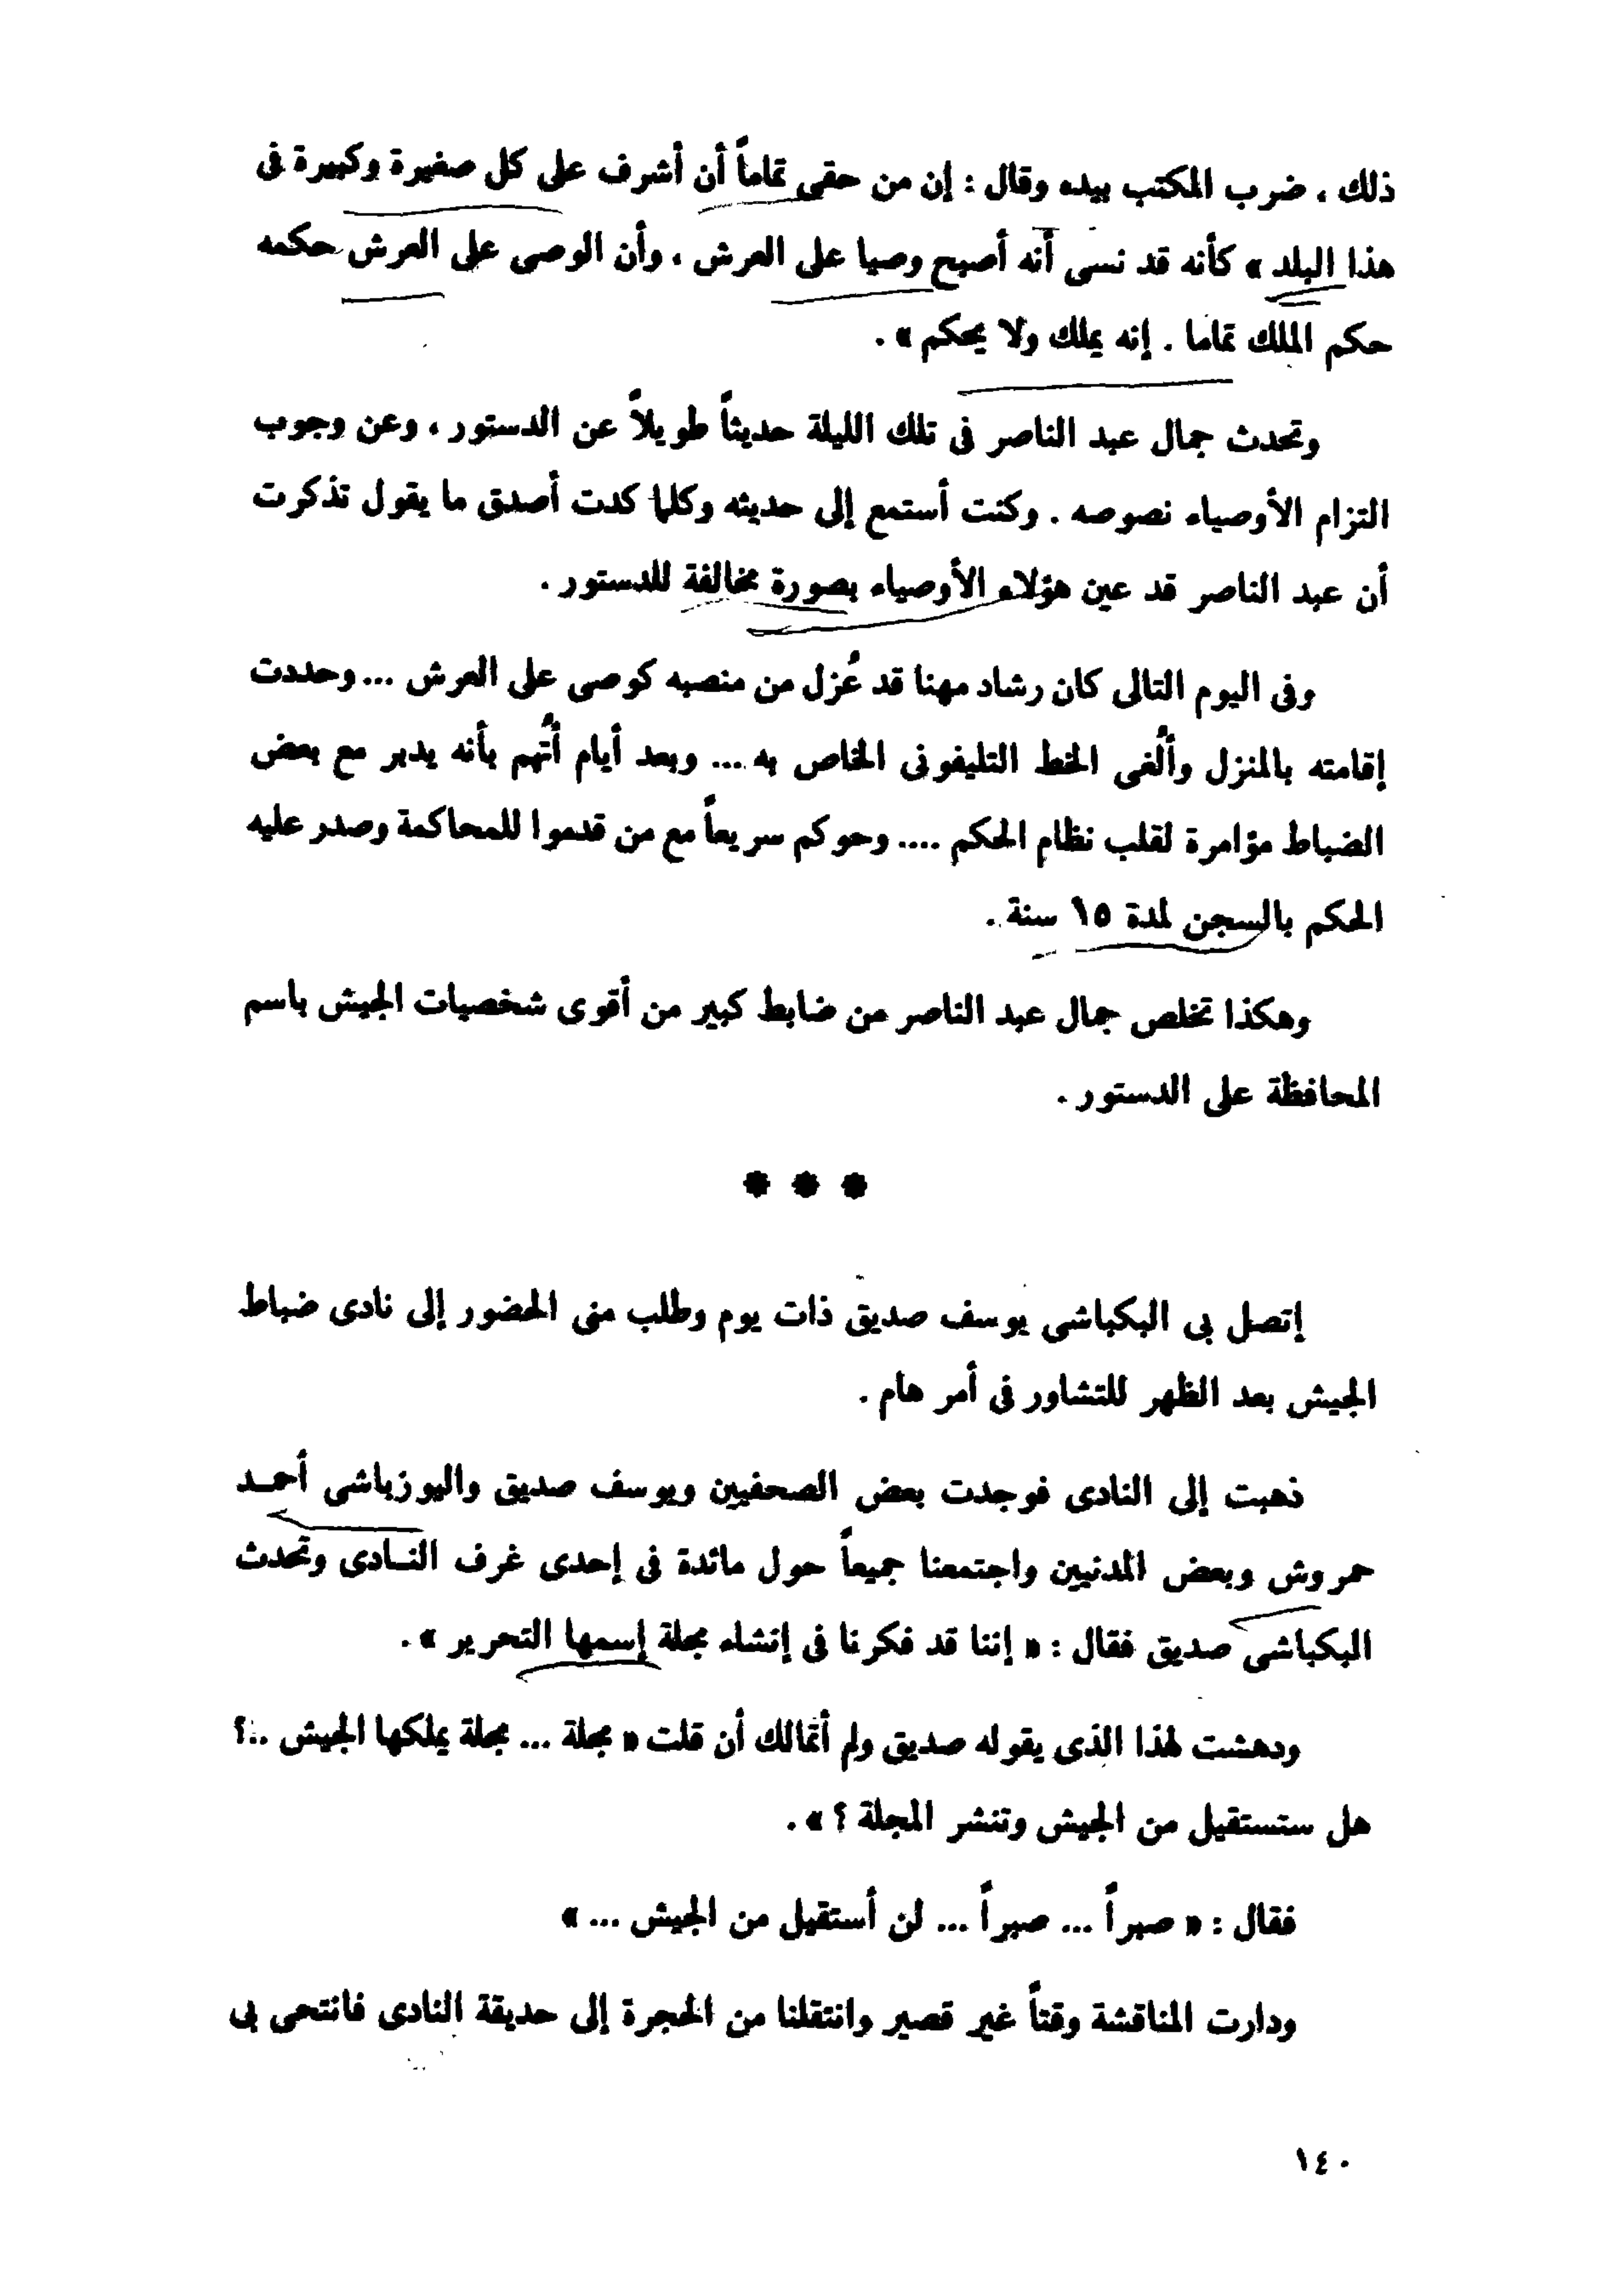 ذلك ، ضرب المكتب بيده وقال : إن من حقى تماماً أن أشرف على كل صغيرة وكبيرة فى
هذا البلد » كأنه قد نسى أنه أصبح وصيا على العرش ، وأن الوصى على العرش حكمه
حكم الملك تماما . إنه يملك ولا يحكم » .
وتحدث جمال عبد الناصر فى تلك الليلة حديثاً طويلاً عن الدستور ، وعن وجوب
التزام الأوصياء نصوصه . وكنت أستمع إلى حديثه وكلما كدت أصدق ما يقول تذكرت
أن عبد الناصر قد عين هؤلاء الأوصياء بصورة مخالفة للدستور .
وفى اليوم التالى كان رشاد مهنا قد عُزل من منصبه كوصى على العرش ... وحددت
إقامته بالمنزل وأُلغى الخط التليفونى الخاص به ... وبعد أيام أُتهم بأنه يدبر مع بعض
الضباط مؤامرة لقلب نظام الحكم .... وحوكم سريعاً مع من قدموا للمحاكمة وصدر عليه
الحكم بالسجن لمدة ١٥ سنة .
وهكذا تخلص جمال عبد الناصر من ضابط كبير من أقوى شخصيات الجيش باسم
المحافظة على الدستور .
* * *
إتصل بى البكباشى يوسف صديق ذات يوم وطلب منى الحضور إلى نادى ضباط
الجيش بعد الظهر للتشاور فى أمر هام .
ذهبت إلى النادى فوجدت بعض الصحفيين ويوسف صديق واليوزباشى أحمد
حمروش وبعض المدنيين واجتمعنا جميعاً حول مائدة فى إحدى غرف النادى وتحدث
البكباشى صديق فقال : « إننا قد فكرنا فى إنشاء مجلة إسمها التحرير » .
ودهشت لهذا الذى يقوله صديق ولم أتمالك أن قلت « مجلة ... مجلة يملكها الجيش ..؟
هل ستستقيل من الجيش وتنشر المجلة ؟ » .
فقال : « صبراً ... صبراً ... لن أستقيل من الجيش ... »
ودارت المناقشة وقتاً غير قصير وانتقلنا من الحجرة إلى حديقة النادى فانتحى بى
١٤٠